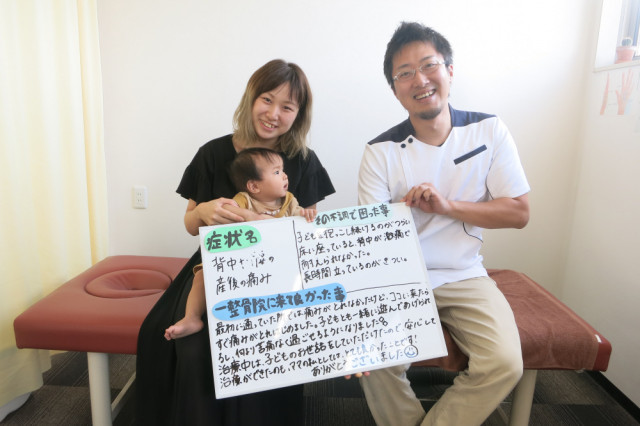 症状名
背中や腰の
産後の痛み
その不調で困った事
子どもを抱っこし続けるのがつらい
床に座っていると、背中が激痛で
耐えられなかった。
長時間立っているのがきつい。
一整骨院に来て良かった事
最初に通っていた所では痛みがとれなかったけど、ココに来たら
すぐ痛みがとれはじめました。子どもとも一緒に遊んであげられ
るし、何より苦痛なく過ごせるようになりました
治療中は、子どものお世話をしていただけたので、安心して
治療ができたのも、ママの私としてはとても良かったことです!
ありがとうございました